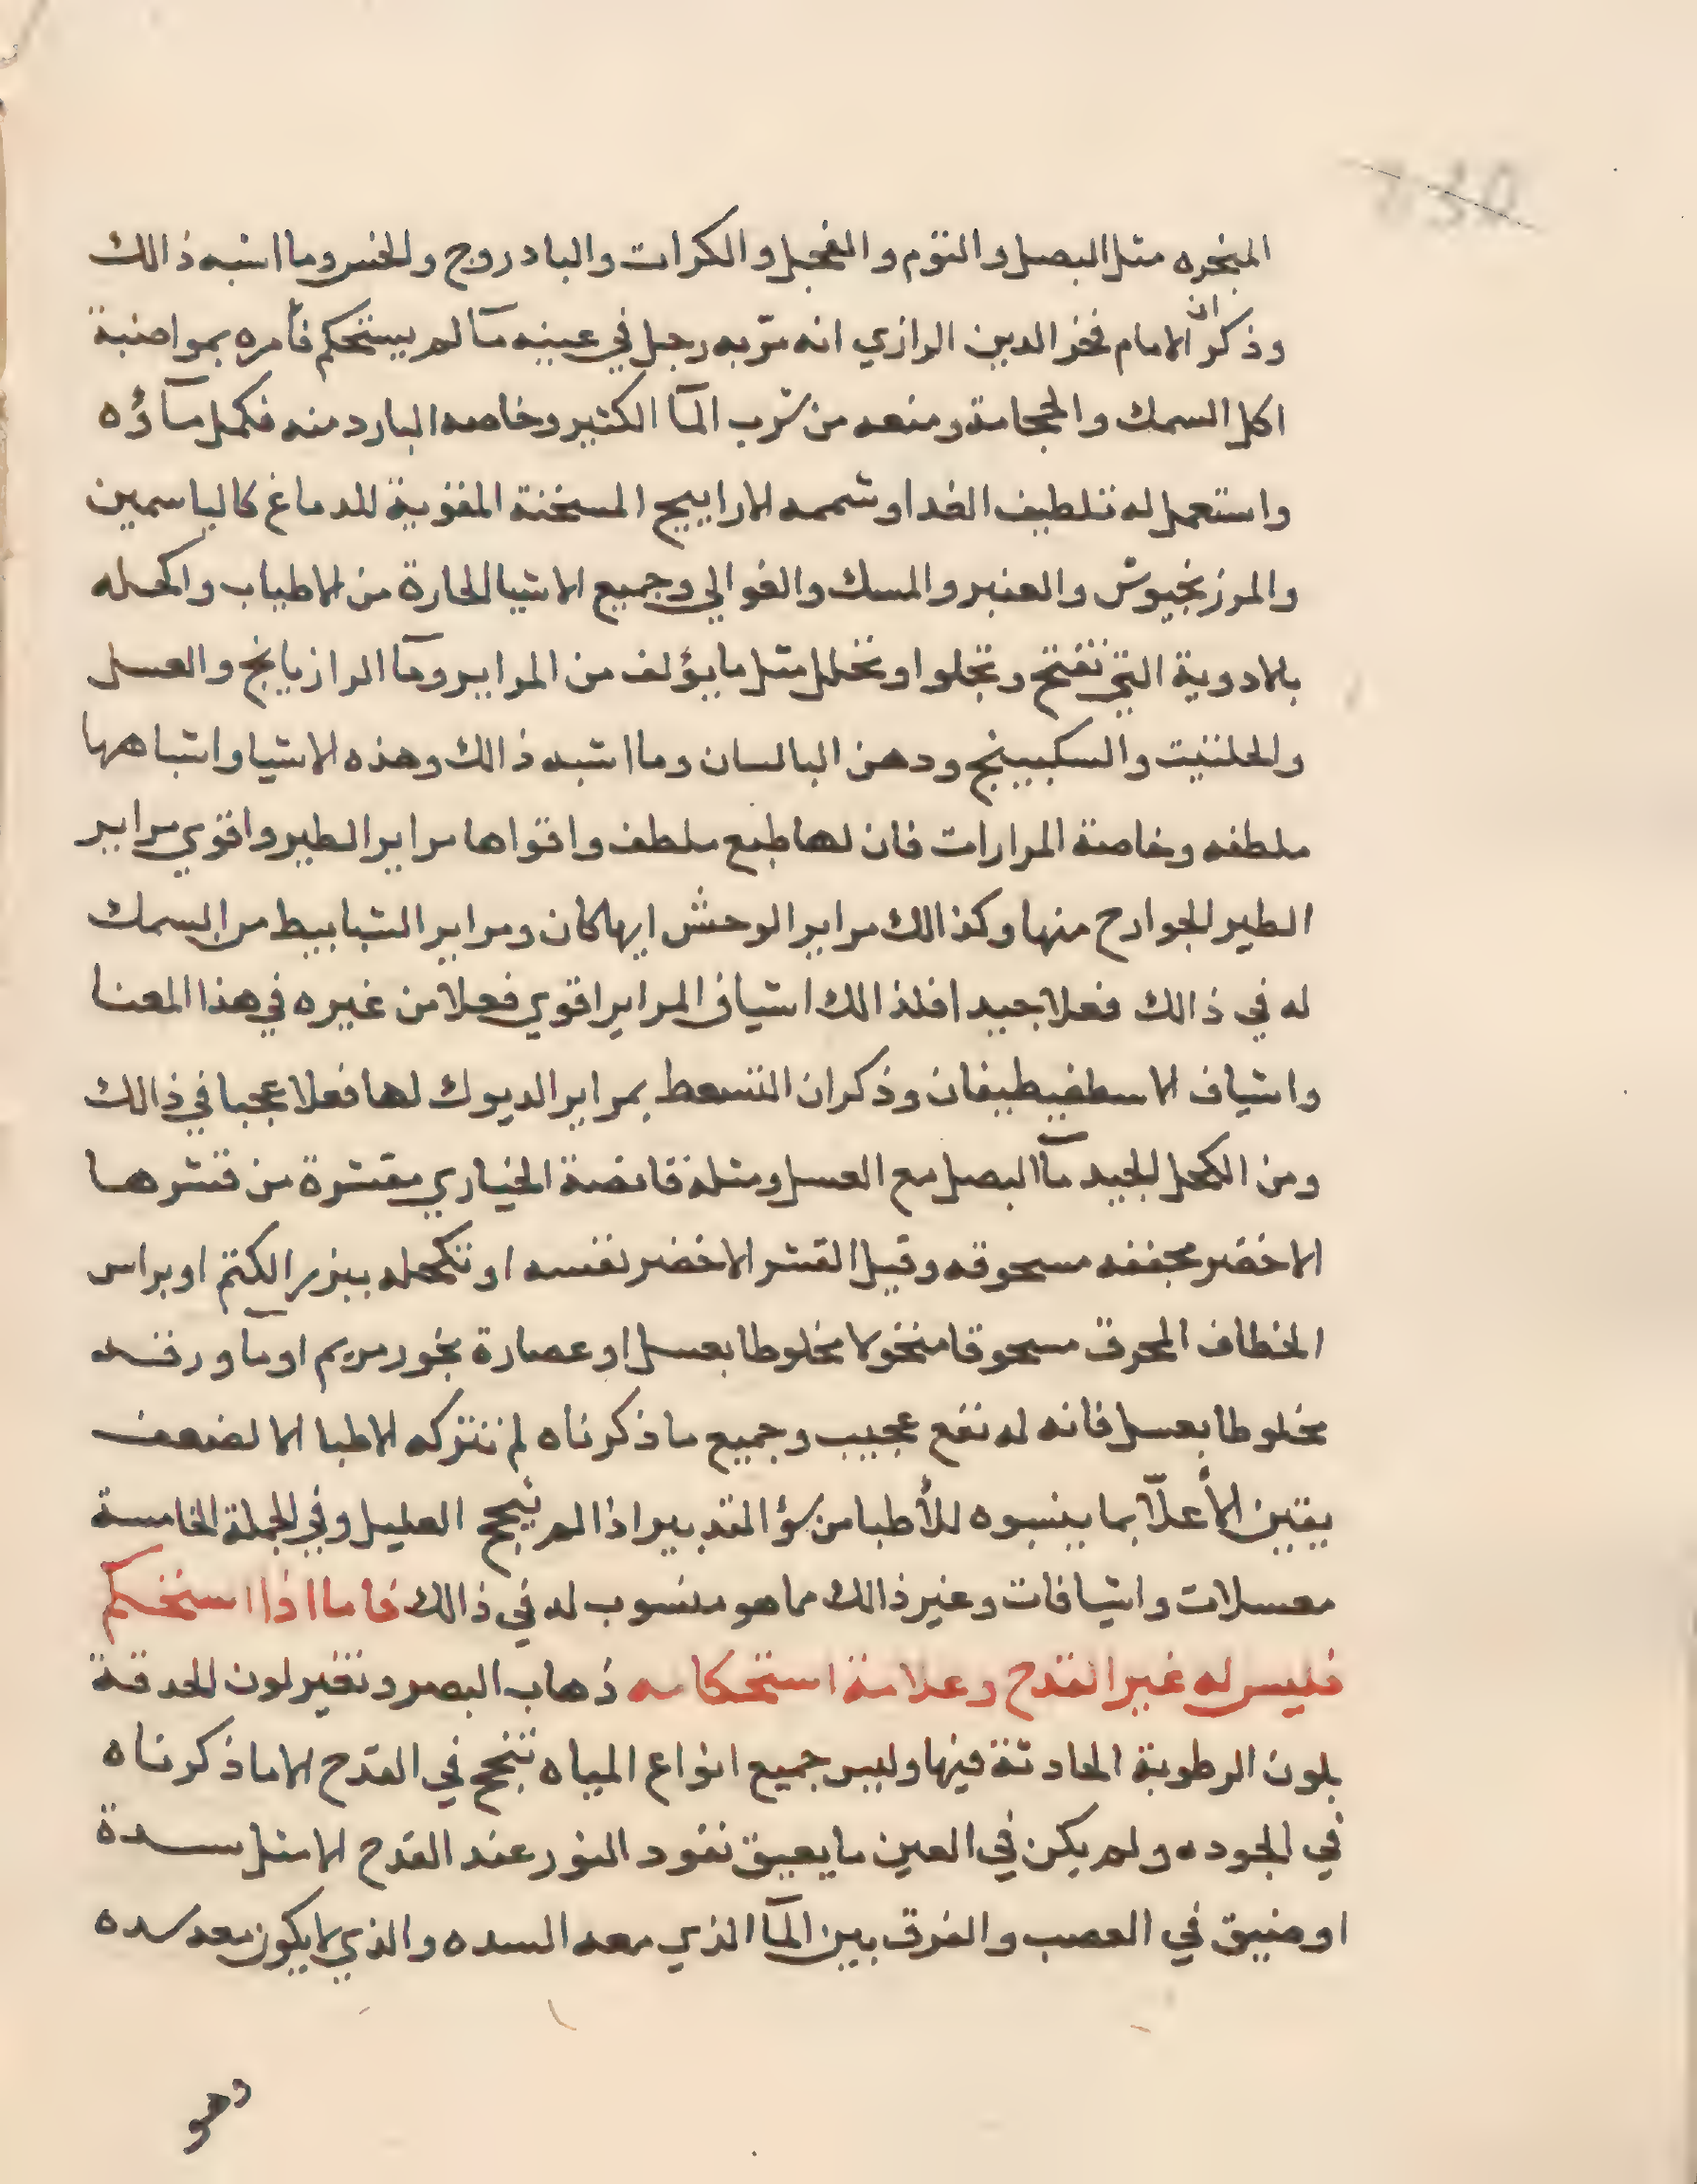 المبخره مثل البصل والثوم والفجل والكرات والبادروج والخس وما اشبه ذالك
وذكر ان الامام فخر الدين الرازي انه مرّ به رجل في عينيه مآ لم يستحكم فأمره بمواضبة
اكل السمك والحجامة ومنعه من شرب المآ الكثير وخاصه البارد منه فكمل مآؤه
واستعمل له تلطيف الغدا وشممه الاراييح المسخنة المقوية للدماغ كالياسمين
والمرزنجوش والعنبر والمسك والغوالي وجميع الاشيا الحارة من الاطياب واكحله
بالادوية التي تفتح وتجلوا وتحلل مثل ما يؤلف من المراير ومآ الرازيانج والعسل
والحلتيت والسكبينج ودهن البالسان وما اشبه ذالك وهذه الاشيا واشباهها
ملطفه وخاصة المرارات فان لها طبع ملطف واقواها مراير الطير واقوي مراير
الطير الجوارح منها وكذالك مراير الوحش ايها كان ومراير الشبابيط من السمك
له في ذالك فعلا جيدا فلذالك اشياف المراير اقوي فعلا من غيره في هذا المعنا
واشياف الاسطفيطيفان وذكر ان التسعط بمراير الديوك لها فعلا عجبا في ذالك
ومن الكحل الجيد مآ البصل مع العسل ومثله قانصة الخياري مقشرة من قشرها
الاخضر مجففه مسحوقه وقيل القشر الاخضر نفسه او تكحله ببزر الكتم او براس
الخطاف المحرق مسحوقا منخولا مخلوطا بعسل او عصارة بخور مريم او مآ ورقـه
مخلوطا بعسل فانه له نفع عجيب وجميع ما ذكرناه لم تتركه الاطبا الا لضعف
يقين الأعلآ بما ينسبوه للأطبا من سؤ التدبير اذا لم ينجح العليل وفي الجملة الخامسة
معسلات واشيافات وغير ذالك مما هو منسوب له في ذالك فاما اذا استحكم
فليس له غير القدح وعلامة استحكامه ذهاب البصر وتغير لون الحدقة
بلون الرطوبة الحادثة فيها وليس جميع انواع المياه تنجح في القدح الا ما ذكرناه
في الجوده ولم يكن في العين ما يعيق نفود النور عند القدح الا مثل سـدة
او ضيق في العصب والفرق بين المآ الذي معه السده والذي لا يكون معه سده
وهو